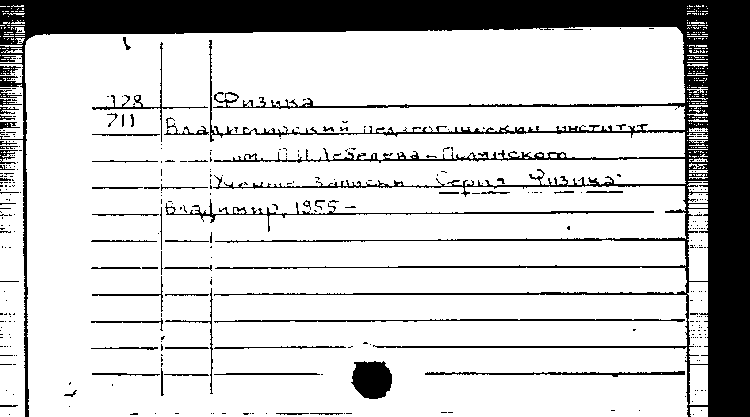 328 Физика
711 Владимирский педагогический институт
им. П.И.Лебедева-Полянского.
Ученые записки. Серия "Физика"
Владимир, 1955-